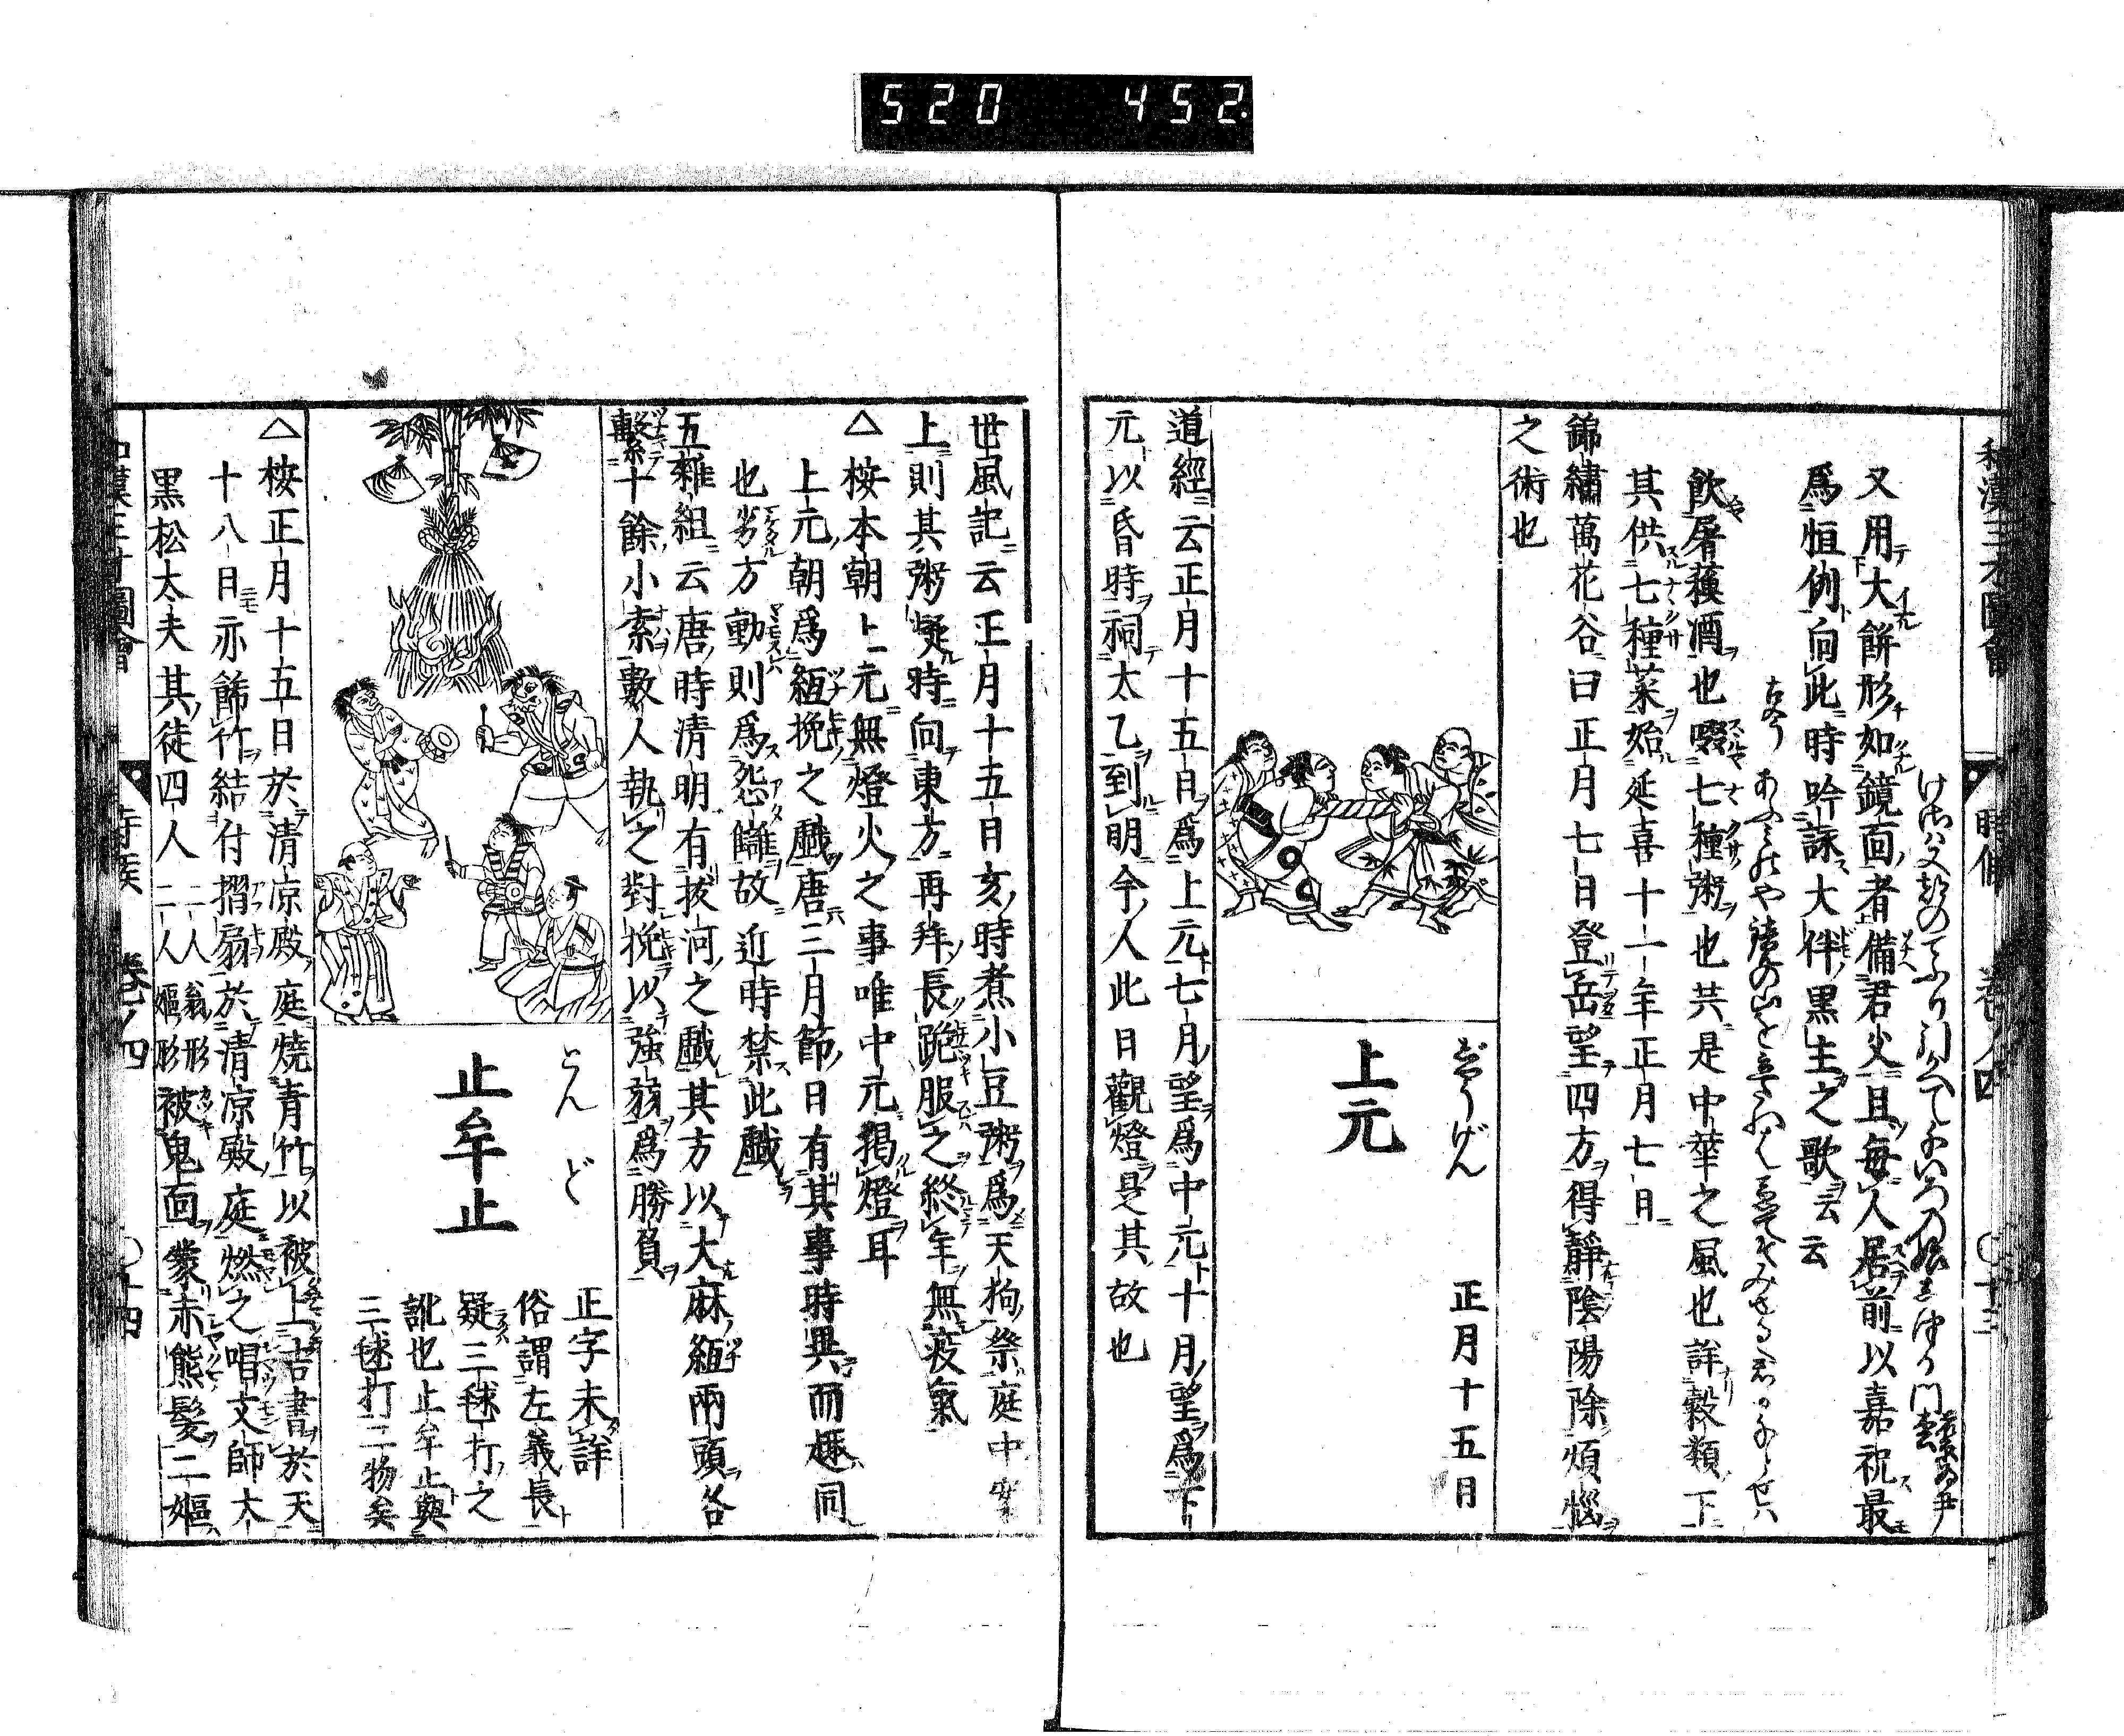 520 452
和漢三才圖會 時候 卷ノ四 〇十三
又用大餅形如鏡面者備君父且每人居前以嘉祝最
爲恒例向此時吟詠大伴黒主之歌云云
古今 あふみのや鏡の山を立たれは かねてそみゆる君か千とせは
飲屠蘓酒也啜七種粥也共是中華之風也詳穀類下
其供七種菜始延喜十一年正月七日
錦繡萬花谷曰正月七日登岳望四方得靜陰陽除煩惱
之術也
上元
じやうげん
正月十五日
道經云正月十五日爲上元七月望爲中元十月望爲下
元以昏時祠太乙到明今人此日觀燈是其故也
世風記云正月十五日亥時煮小豆粥爲天狗祭庭中案
上則其粥凝時向東方再拜長跪服之終年無疫氣
△桉本朝上元無燈火之事唯中元揭燈耳
上元朝爲絙挽之戲唐三月節日有其事時異而趣同
也劣方動則爲怨讎故近時禁此戲
五雜組云唐時清明有拔河之戲其方以大麻絙兩頭各
繫十餘小索數人執之對挽以強弱爲勝負
止牟止
とんど
正字未詳
俗謂左義長
疑三毬打之
訛也止牟止與
三毬打二物矣
△桉正月十五日於清凉殿庭燒青竹以被上吉書於天
十八日亦餙竹結付摺扇於清凉殿庭燃之唱文師大
黒松太夫其徒四人二人翁形二人嫗形被鬼面蒙赤熊髮二嫗
和漢三才圖會 時候 卷ノ四 〇十四